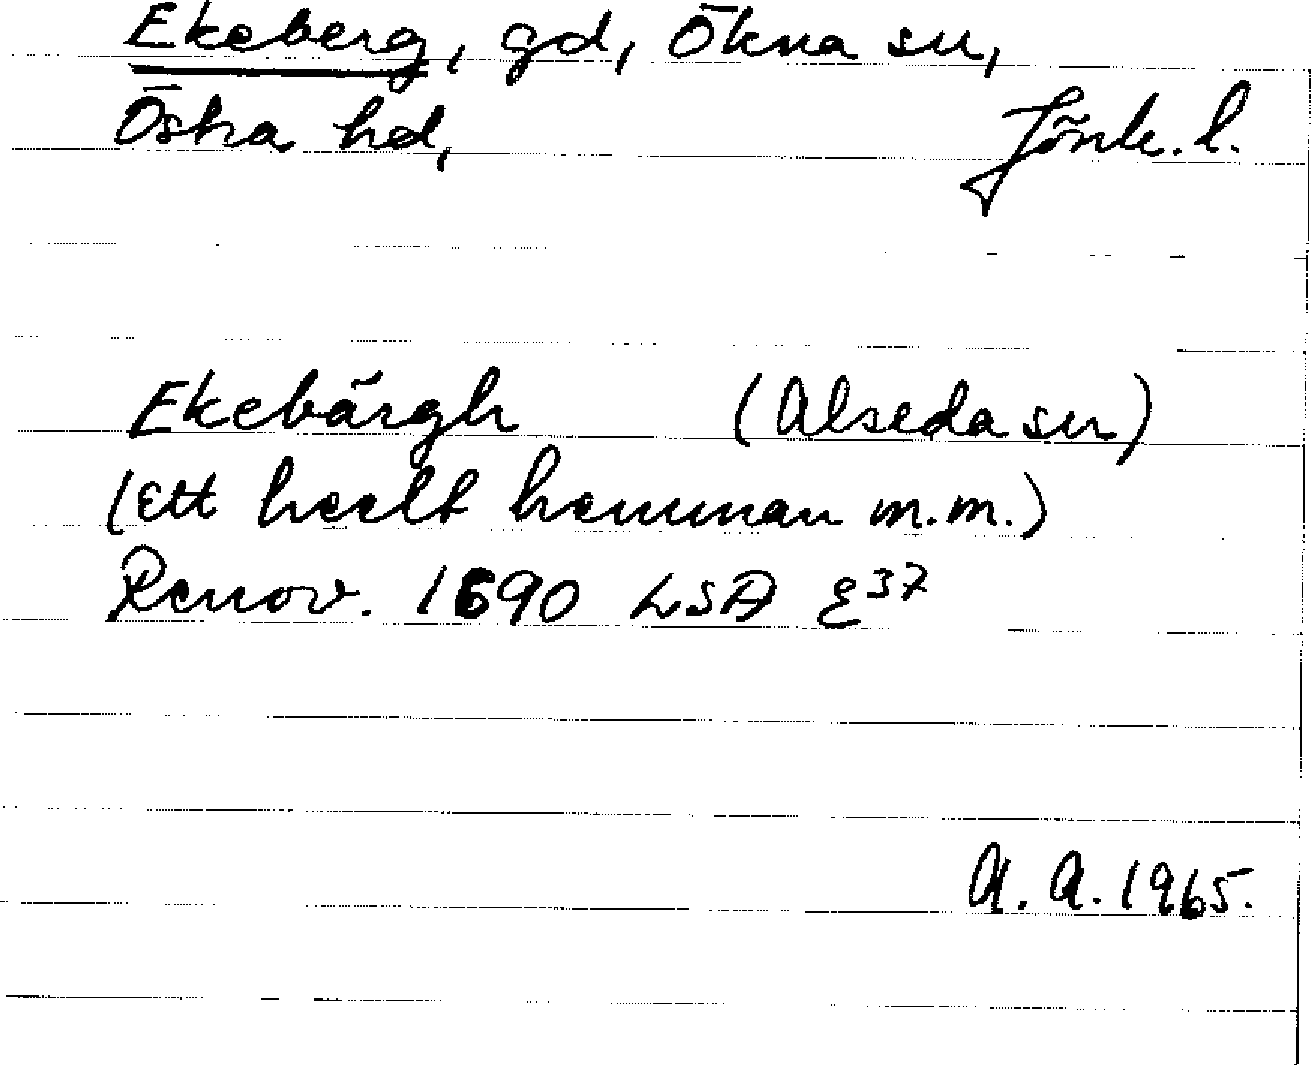 Ekeberg, gd, Ökna sn,
Östra hd, Jönk. l.
Ekebärgh (Alseda sn)
(Ett heelt hemman m.m.)
Renov. 1690 LSA E37
A. A. 1965.